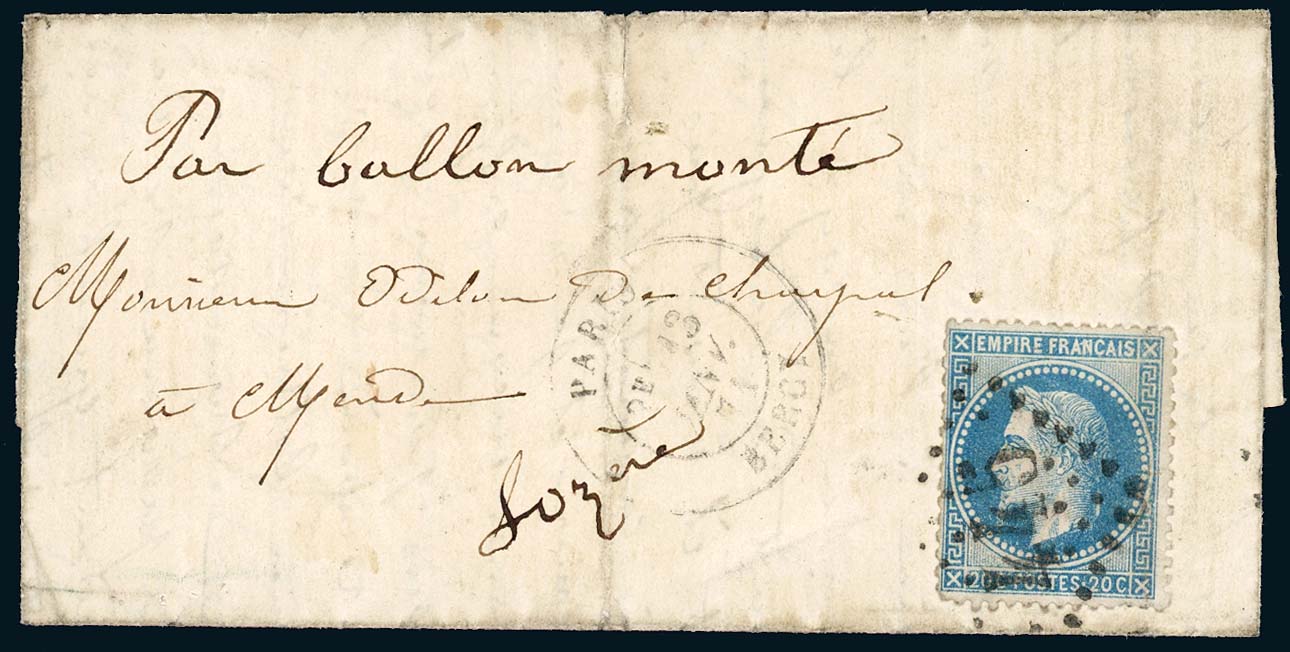 Par ballon monté
Monsieur Odilon De Chaspal.
à Mende
Lozère
PARIS
BERCY
13
JANV.
71
EMPIRE FRANÇAIS
20 C POSTES 20 C